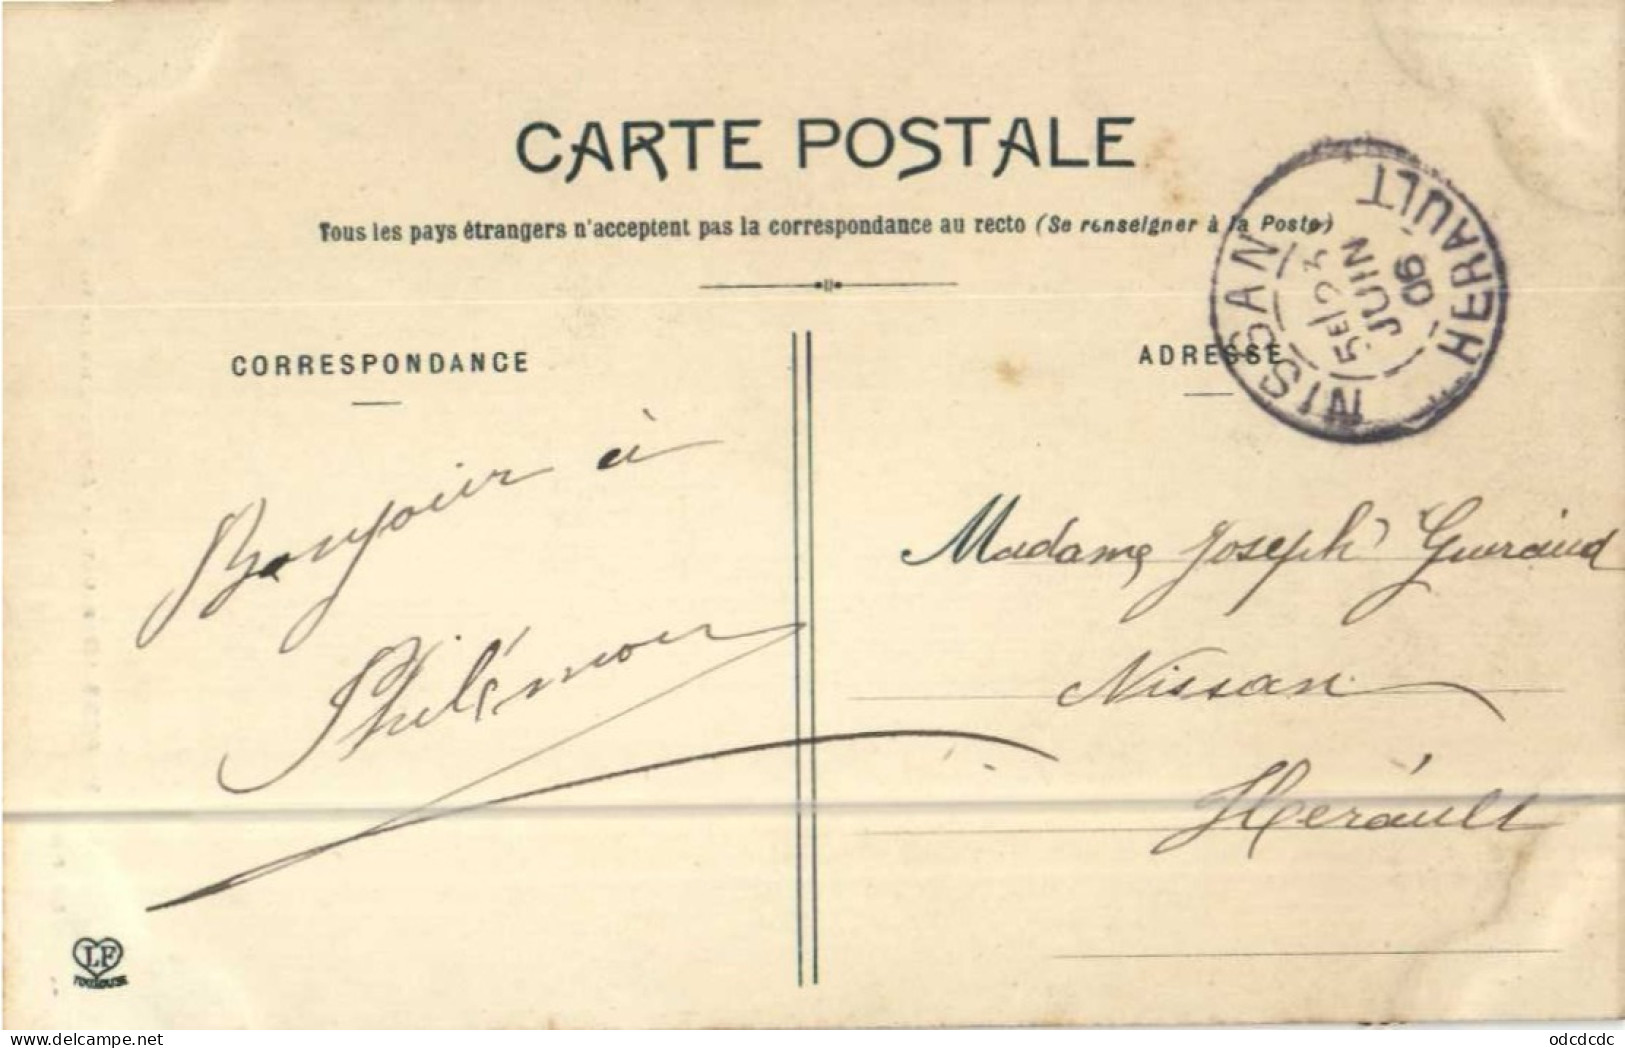 CARTE POSTALE
Tous les pays étrangers n'acceptent pas la correspondance au recto (Se renseigner à la Poste)
CORRESPONDANCE
ADRESSE
NISSAN HERAULT
5E 23
JUIN
06
Bonjour à
Philémon
Madame Joseph Guiraud
Nissan
Hérault
LF
TOULOUSE
odcdcdc